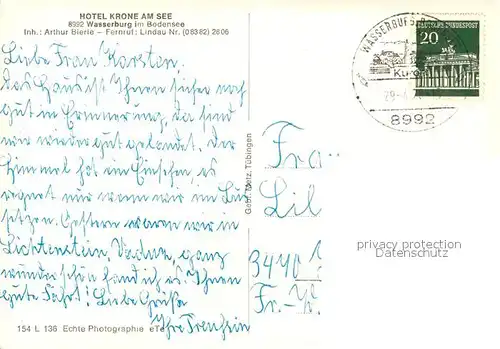 HOTEL KRONE AM SEE
8992 Wasserburg im Bodensee
Inh.: Arthur Bierle – Fernruf: Lindau Nr. (08382) 2606
Liebe Frau Karsten,
das Haus ist Ihnen sicher noch
gut in Erinnerung, da sind
wir wieder gut gelandet. Der
Himmel hat ein Einsehen, es
regnet nur wenn wir im
sitzen. Gestern waren wir in
Lichtenstein, Vaduz, ganz
wunderschön fand ich es. Ihnen
gute Fahrt! Liebe Grüße
Ihre
154 L 136 Echte Photographie
Gebr. Metz, Tübingen
WASSERBURG
Kurort
8992
DEUTSCHE BUNDESPOST
20
Fra
Lil
3440
Fr.-
privacy protection
Datenschutz